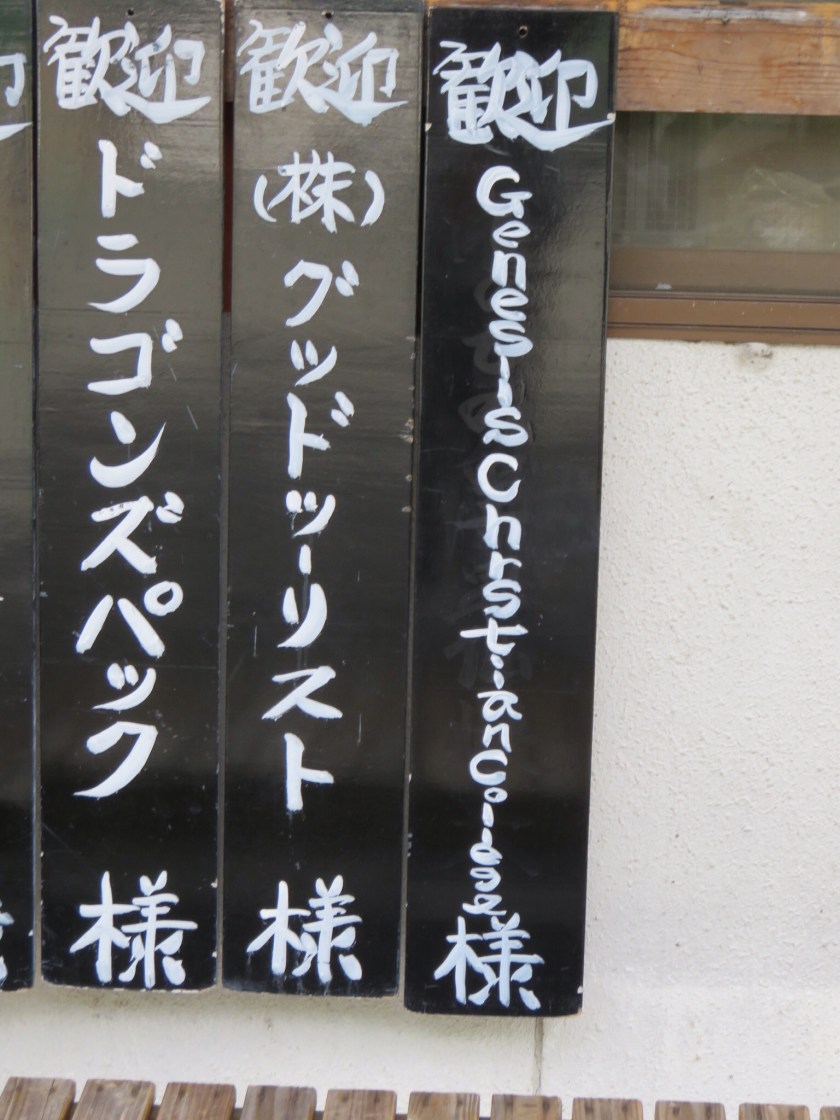 歓迎 Genesis Christian College 様
歓迎 (株)グッドツーリスト 様
歓迎 ドラゴンズパック 様